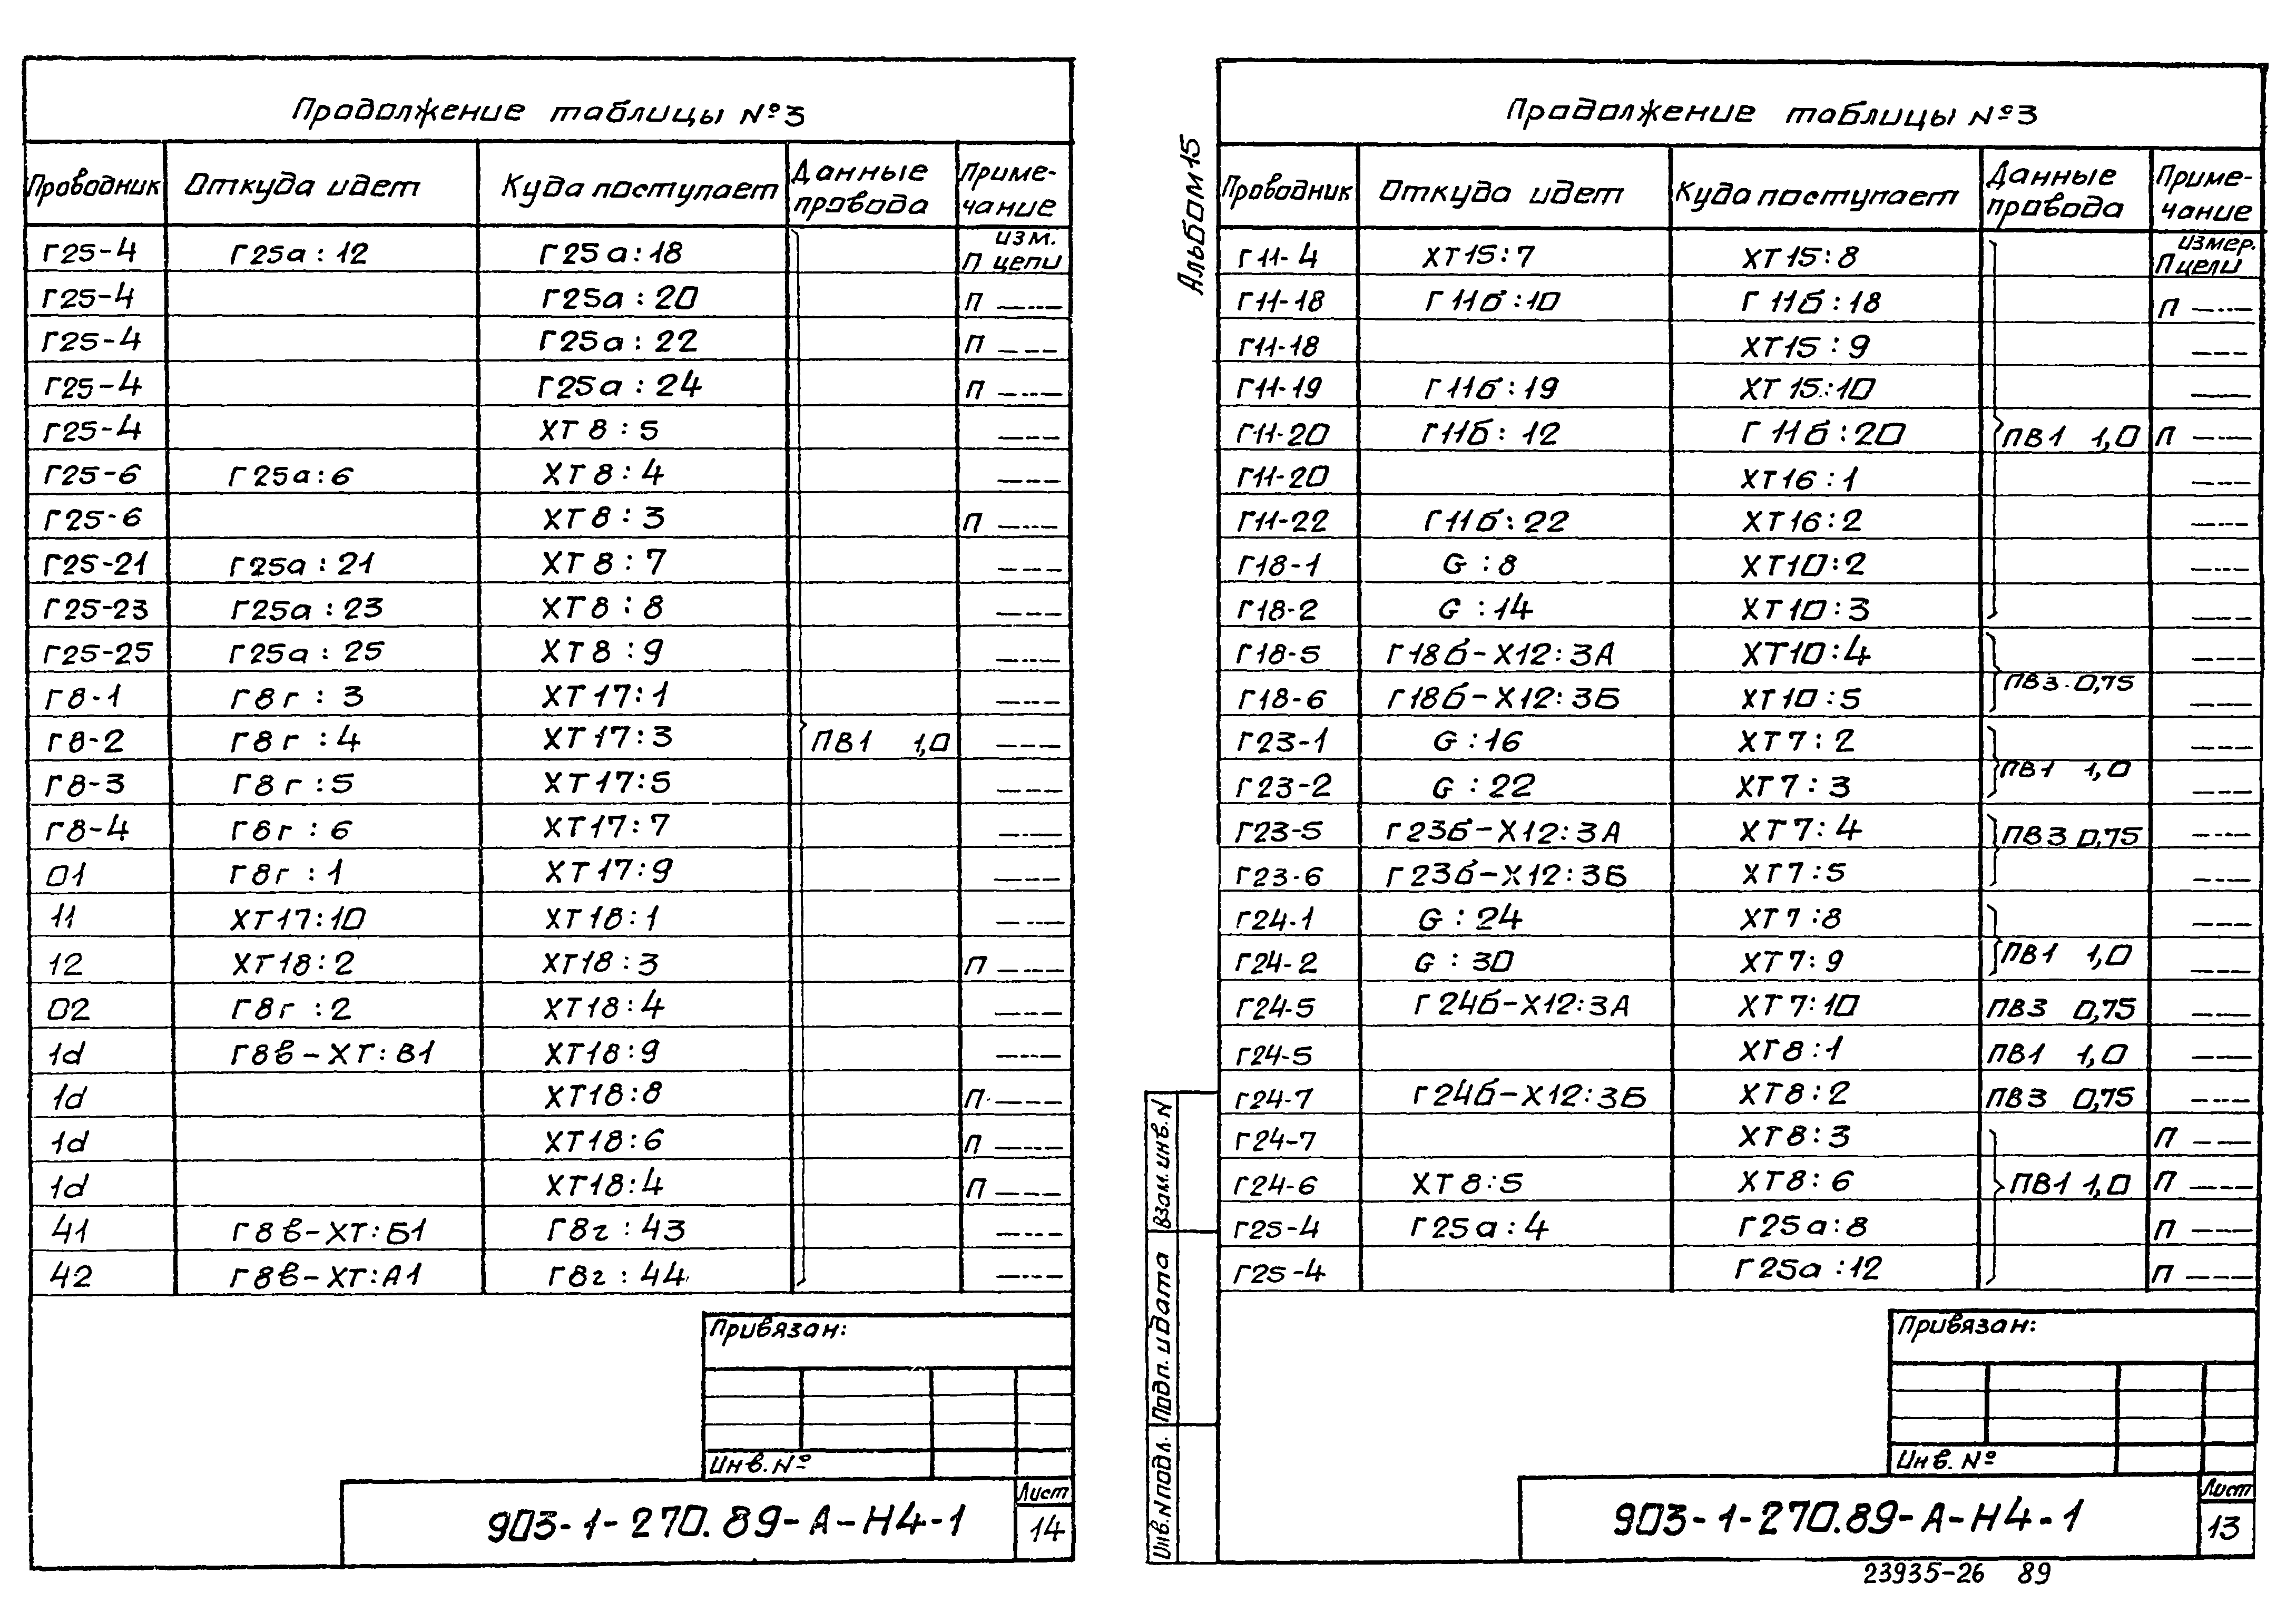 Продолжение таблицы №3
Проводник Откуда идет Куда поступает Данные провода Примечание
Г25-4 Г25а:12 Г25а:18 П изм. цепи
Г25-4 Г25а:20 П —·—
Г25-4 Г25а:22 П —·—
Г25-4 Г25а:24 П —·—
Г25-4 ХТ8:5 —·—
Г25-6 Г25а:6 ХТ8:4 —·—
Г25-6 ХТ8:3 П —·—
Г25-21 Г25а:21 ХТ8:7 —·—
Г25-23 Г25а:23 ХТ8:8 —·—
Г25-25 Г25а:25 ХТ8:9 —·—
Г8-1 Г8г:3 ХТ17:1 —·—
Г8-2 Г8г:4 ХТ17:3 ПВ1 1,0 —·—
Г8-3 Г8г:5 ХТ17:5 —·—
Г8-4 Г6г:6 ХТ17:7 —·—
01 Г8г:1 ХТ17:9 —·—
11 ХТ17:10 ХТ18:1 —·—
12 ХТ18:2 ХТ18:3 П —·—
02 Г8г:2 ХТ18:4 —·—
1d Г8в-ХТ:В1 ХТ18:9 —·—
1d ХТ18:8 П —·—
1d ХТ18:6 П —·—
1d ХТ18:4 П —·—
41 Г8в-ХТ:Б1 Г8г:43 —·—
42 Г8в-ХТ:А1 Г8г:44 —·—
Привязан:
Инв.№
903-1-270.89-А-Н4-1
Лист
14
Альбом 15
Продолжение таблицы №3
Проводник Откуда идет Куда поступает Данные провода Примечание
Г11-4 ХТ15:7 ХТ15:8 П измер. цепи
Г11-18 Г11б:10 Г11б:18 П —·—
Г11-18 ХТ15:9 —·—
Г11-19 Г11б:19 ХТ15:10 —·—
Г11-20 Г11б:12 Г11б:20 ПВ1 1,0 П —·—
Г11-20 ХТ16:1 —·—
Г11-22 Г11б:22 ХТ16:2 —·—
Г18-1 G:8 ХТ10:2 —·—
Г18-2 G:14 ХТ10:3 —·—
Г18-5 Г18б-Х12:3А ХТ10:4 —·—
ПВ3 0,75
Г18-6 Г18б-Х12:3Б ХТ10:5 —·—
Г23-1 G:16 ХТ7:2 —·—
ПВ1 1,0
Г23-2 G:22 ХТ7:3 —·—
Г23-5 Г23б-Х12:3А ХТ7:4 ПВ3 0,75 —·—
Г23-6 Г23б-Х12:3Б ХТ7:5 —·—
Г24-1 G:24 ХТ7:8 —·—
Г24-2 G:30 ХТ7:9 ПВ1 1,0 —·—
Г24-5 Г24б-Х12:3А ХТ7:10 ПВ3 0,75 —·—
Г24-5 ХТ8:1 ПВ1 1,0 —·—
Г24-7 Г24б-Х12:3Б ХТ8:2 ПВ3 0,75 —·—
Г24-7 ХТ8:3 П —·—
Г24-6 ХТ8:5 ХТ8:6 ПВ1 1,0 П —·—
Г25-4 Г25а:4 Г25а:8 П —·—
Г25-4 Г25а:12 П —·—
Взам.инв.N
Подп. и дата
Инв.N подл.
Привязан:
Инв.№
903-1-270.89-А-Н4-1
Лист
13
23935-26 89